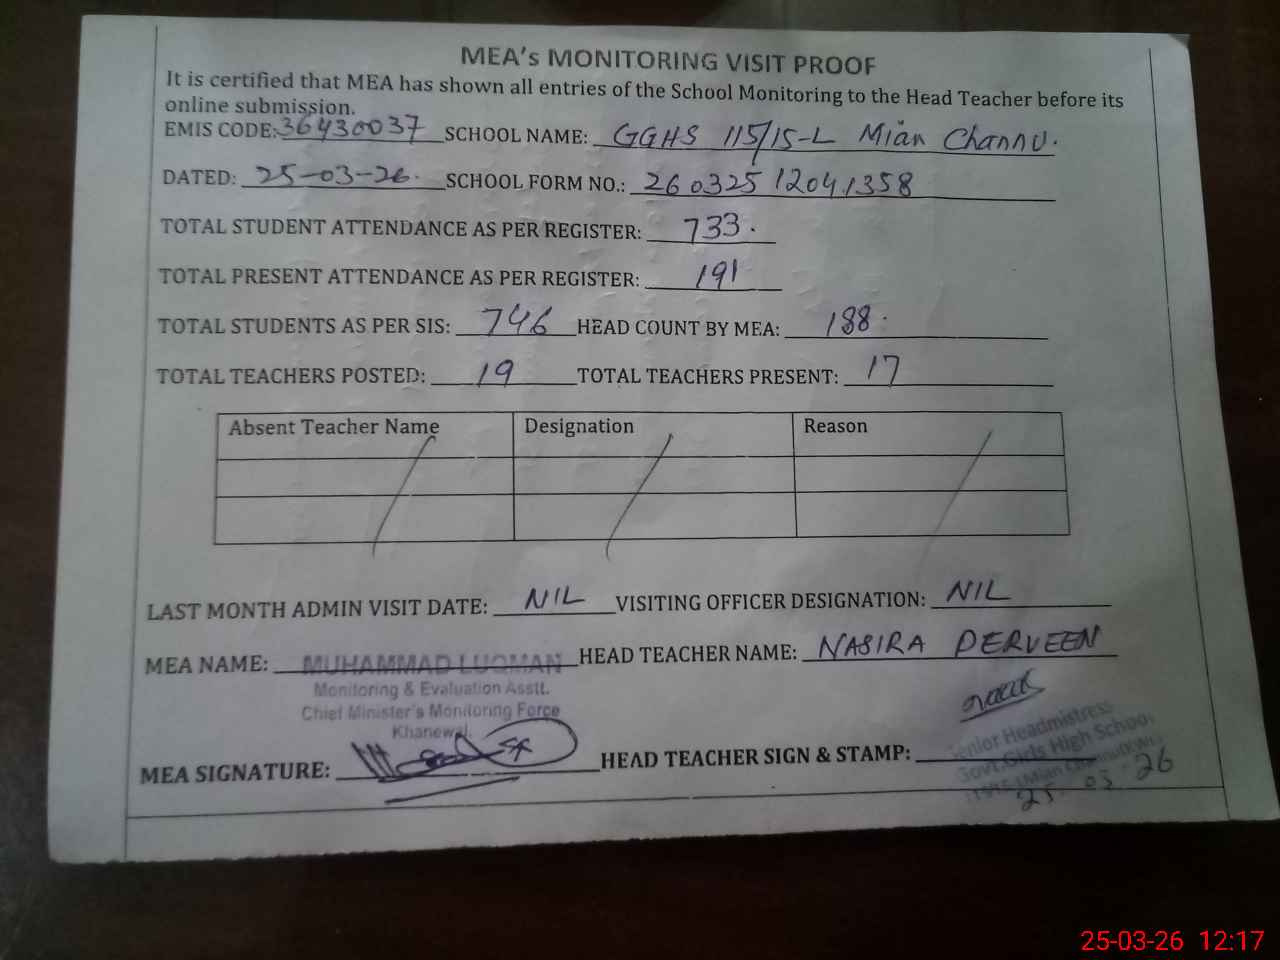 MEA's MONITORING VISIT PROOF
It is certified that MEA has shown all entries of the School Monitoring to the Head Teacher before its
online submission.
EMIS CODE: 36430037 SCHOOL NAME: GGHS 115/15-L Mian Channu.
DATED: 25-03-26. SCHOOL FORM NO.: 260325 12041358
TOTAL STUDENT ATTENDANCE AS PER REGISTER: 733.
TOTAL PRESENT ATTENDANCE AS PER REGISTER: 191
TOTAL STUDENTS AS PER SIS: 746 HEAD COUNT BY MEA: 188.
TOTAL TEACHERS POSTED: 19 TOTAL TEACHERS PRESENT: 17
Absent Teacher Name Designation Reason
LAST MONTH ADMIN VISIT DATE: NIL VISITING OFFICER DESIGNATION: NIL
MEA NAME: MUHAMMAD LUQMAN HEAD TEACHER NAME: NASIRA PERVEEN
Monitoring & Evaluation Asstt.
Chief Minister's Monitoring Force
Khanewal.
MEA SIGNATURE: HEAD TEACHER SIGN & STAMP:
Senior Headmistress
Govt. Girls High School
25 03 26
25-03-26 12:17